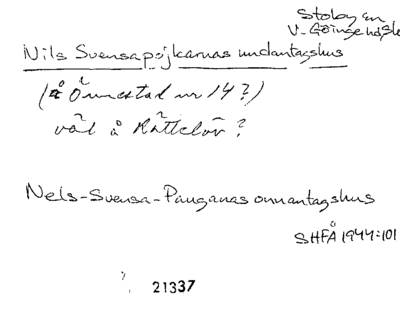 Stoby sn
V. Göinge hd, Sk
Nils Svensapojkarnas undantagshus
(å Önnestad nr 14?)
väl å Rättelöv?
Nels-Svensa-Pauganas onnantagshus
SHFÅ 1944:101
21337